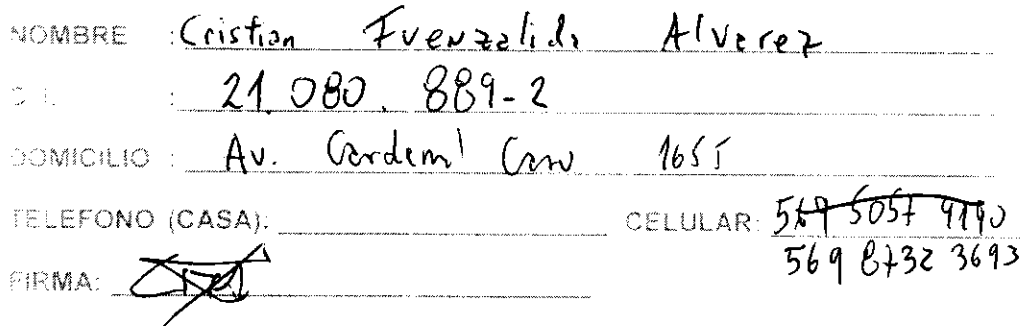 NOMBRE : Cristian Fuenzalida Alvarez
C.I. : 21.080.889-2
DOMICILIO : Av. Cardenal Caro 1655
TELEFONO (CASA): CELULAR: 569 5057 9190
569 8732 3693
FIRMA: